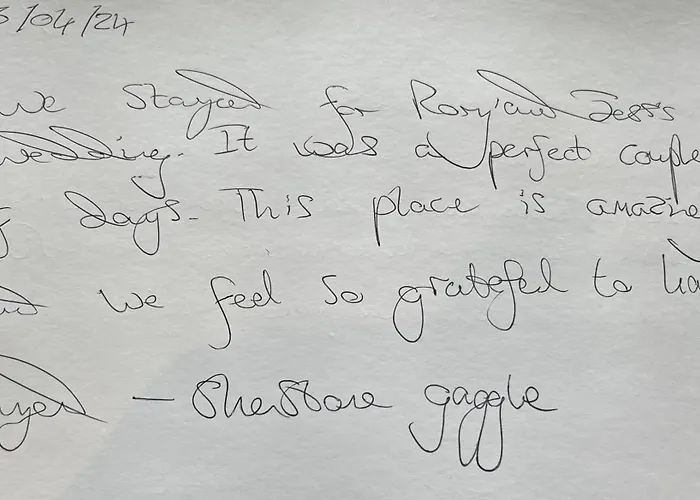 3/04/24
we stayed for Rory and Jess's
wedding. It was a perfect couple
of days. This place is amazing
and we feel so grateful to ha
ayed — Sherborne gaggle